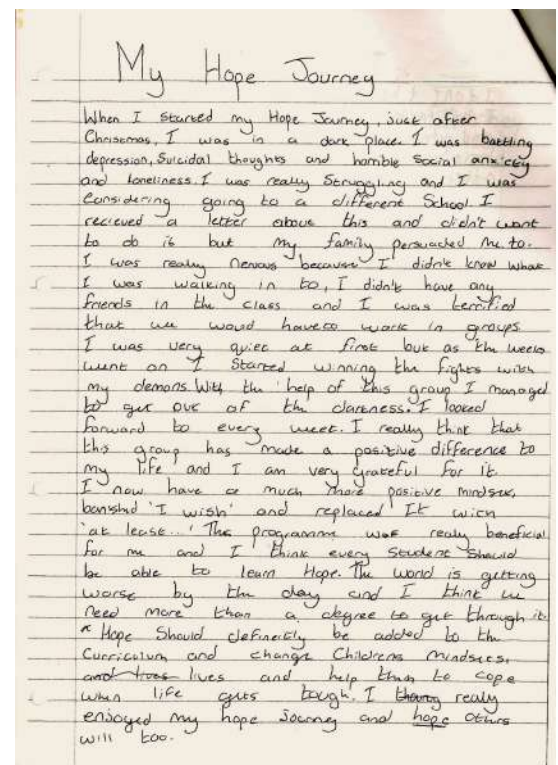 My Hope Journey
When I started my Hope Journey, just after
Chrisemas, I was in a dark place. I was battling
depression, Suicidal thoughts and horrible Social anxiety
and loneliness. I was really Struggling and I was
Considering going to a different School. I
recieved a letter about this and didn't want
to do it but my family persuaded me to.
I was really nervous because I didn't know what
I was walking in to, I didn't have any
friends in the class and I was terrified
that we woud have to work in groups
I was very quiet at first but as the weeks
went on I Started winning the fights with
my demons. With the help of this group I managed
to get out of the darkness. I looked
forward to every week. I really think that
this group has made a positive difference to
my life and I am very grateful for it.
I now have a much more positive mindset,
banishd 'I wish' and replaced It with
'at least...' The programme was realy beneficial
for me and I think every Student Should
be able to learn Hope. The world is getting
worse by the day and I think we
need more than a degree to get through it.
* Hope Should definetly be added to the
Curriculum and change Childrens mindsets,
and lives lives and help them to cope
when life gets tough. I really
enjoyed my hope Journey and hope others
will too.